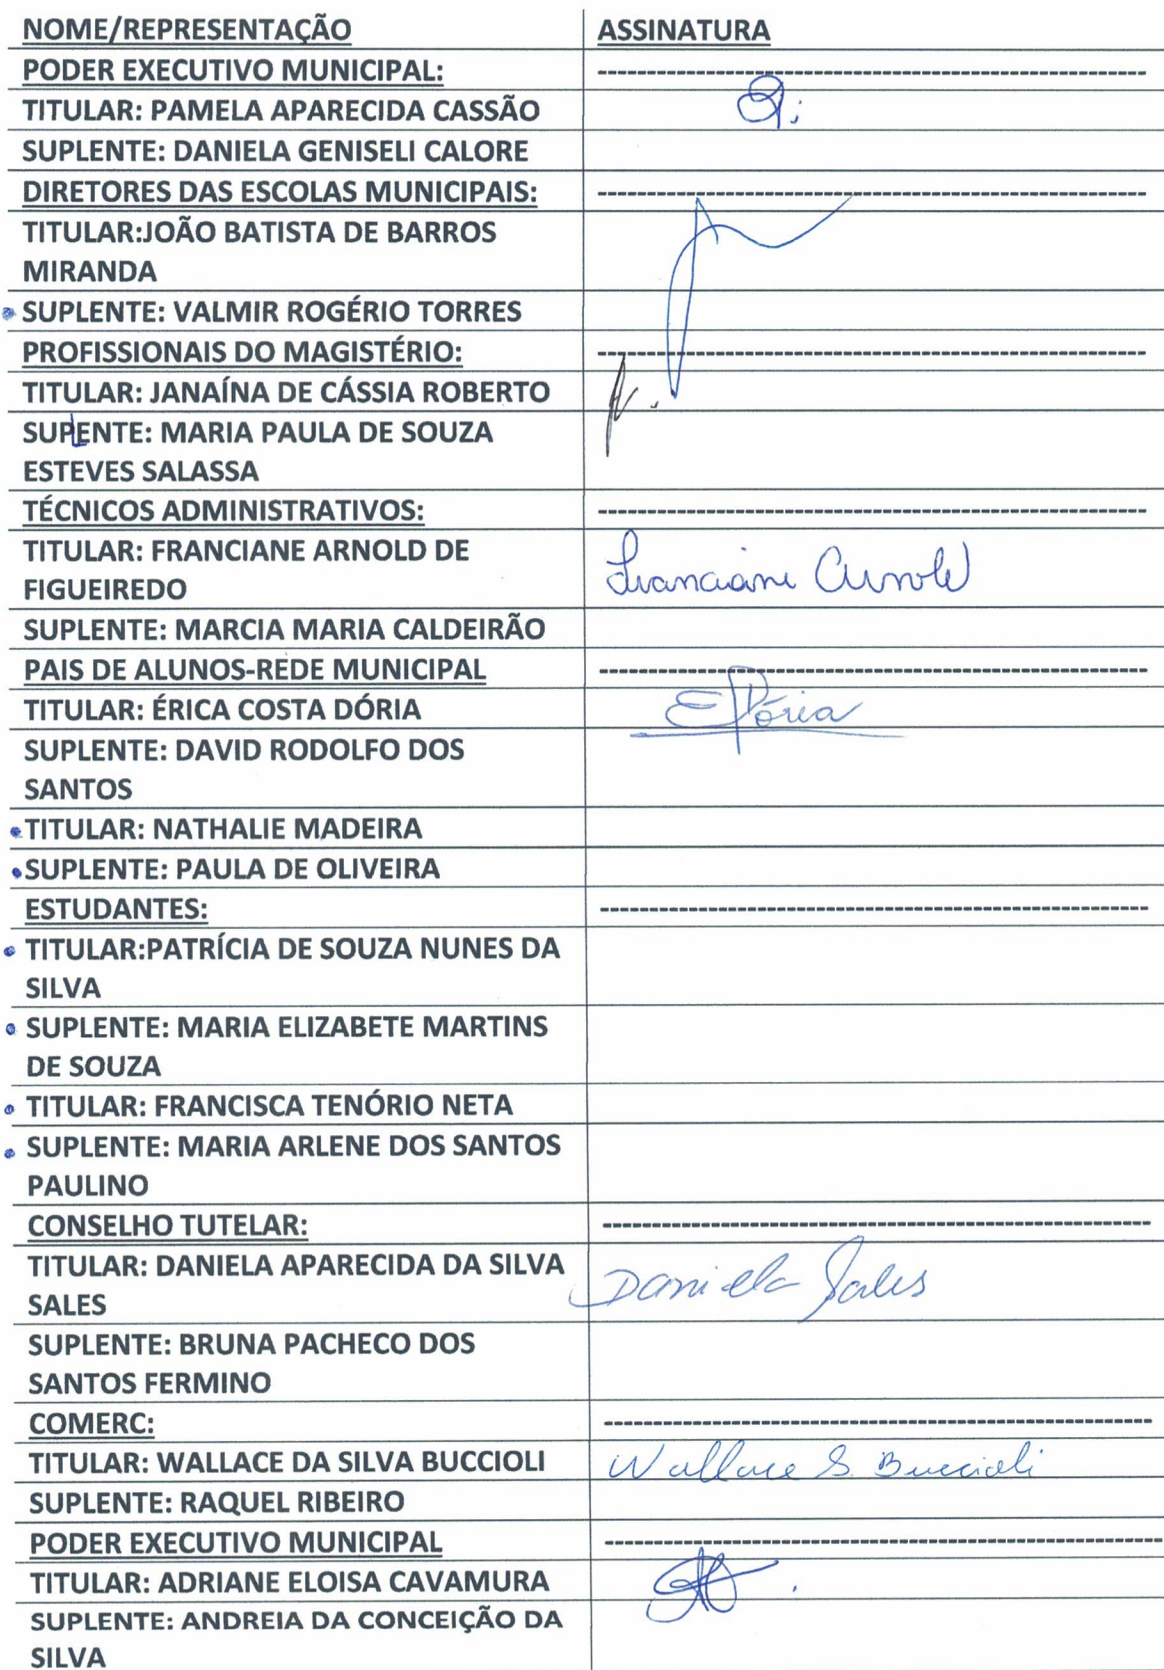 NOME/REPRESENTAÇÃO ASSINATURA
PODER EXECUTIVO MUNICIPAL: ------------------------------------------------------
TITULAR: PAMELA APARECIDA CASSÃO
SUPLENTE: DANIELA GENISELI CALORE
DIRETORES DAS ESCOLAS MUNICIPAIS: ------------------------------------------------------
TITULAR:JOÃO BATISTA DE BARROS
MIRANDA
SUPLENTE: VALMIR ROGÉRIO TORRES
PROFISSIONAIS DO MAGISTÉRIO: ------------------------------------------------------
TITULAR: JANAÍNA DE CÁSSIA ROBERTO
SUPLENTE: MARIA PAULA DE SOUZA
ESTEVES SALASSA
TÉCNICOS ADMINISTRATIVOS: ------------------------------------------------------
TITULAR: FRANCIANE ARNOLD DE
FIGUEIREDO
Franciani Arnold
SUPLENTE: MARCIA MARIA CALDEIRÃO
PAIS DE ALUNOS-REDE MUNICIPAL ------------------------------------------------------
TITULAR: ÉRICA COSTA DÓRIA Dória
SUPLENTE: DAVID RODOLFO DOS
SANTOS
TITULAR: NATHALIE MADEIRA
SUPLENTE: PAULA DE OLIVEIRA
ESTUDANTES: ------------------------------------------------------
TITULAR:PATRÍCIA DE SOUZA NUNES DA
SILVA
SUPLENTE: MARIA ELIZABETE MARTINS
DE SOUZA
TITULAR: FRANCISCA TENÓRIO NETA
SUPLENTE: MARIA ARLENE DOS SANTOS
PAULINO
CONSELHO TUTELAR: ------------------------------------------------------
TITULAR: DANIELA APARECIDA DA SILVA
SALES
Daniela Sales
SUPLENTE: BRUNA PACHECO DOS
SANTOS FERMINO
COMERC: ------------------------------------------------------
TITULAR: WALLACE DA SILVA BUCCIOLI Wallace S. Buccioli
SUPLENTE: RAQUEL RIBEIRO
PODER EXECUTIVO MUNICIPAL ------------------------------------------------------
TITULAR: ADRIANE ELOISA CAVAMURA
SUPLENTE: ANDREIA DA CONCEIÇÃO DA
SILVA